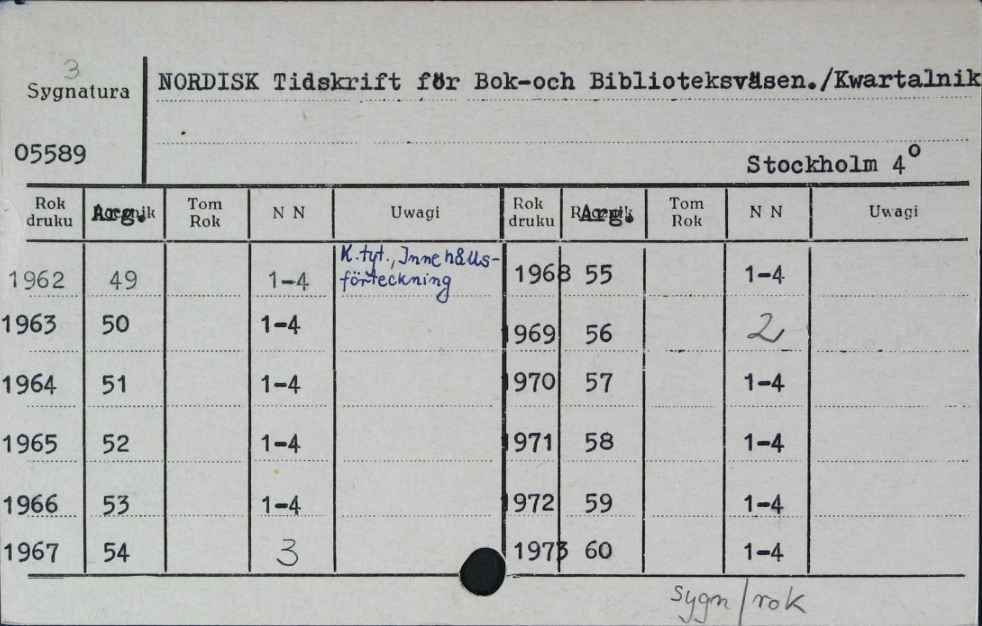 3
Sygnatura
NORDISK Tidskrift för Bok-och Biblioteksväsen./Kwartalnik
05589
Stockholm 4°
Rok druku Arg. Tom Rok N N Uwagi Rok druku Arg. Tom Rok N N Uwagi
1962 49 1-4 K.tyt., Innehålls-förteckning 1968 55 1-4
1963 50 1-4 1969 56 2
1964 51 1-4 1970 57 1-4
1965 52 1-4 1971 58 1-4
1966 53 1-4 1972 59 1-4
1967 54 3 1973 60 1-4
sygn/rok